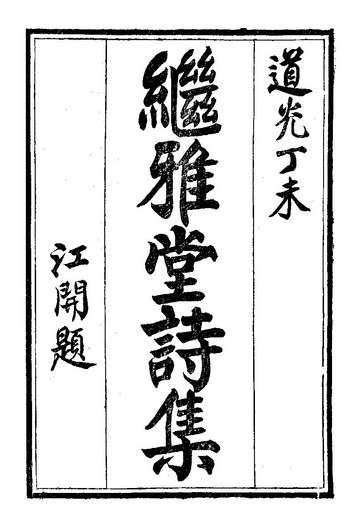 道光丁未
繼雅堂詩集
江開題